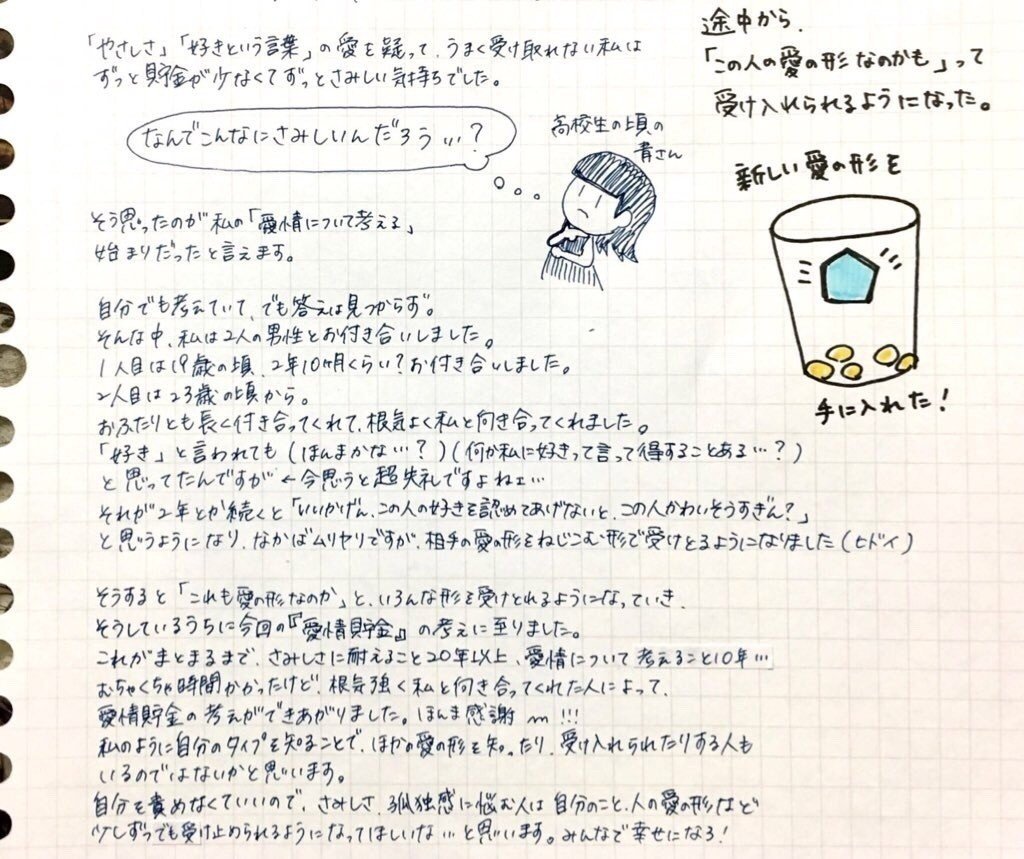 「やさしさ」「好きという言葉」の愛を疑って、うまく受け取れない私は
ずっと貯金が少なくてずっとさみしい気持ちでした。
なんでこんなにさみしいんだろう…？
高校生の頃の
青さん
そう思ったのが私の「愛情について考える」
始まりだったと言えます。
自分でも考えていて、でも答えは見つからず。
そんな中、私は2人の男性とお付き合いしました。
1人目は19歳の頃、2年10ヶ月くらい？お付き合いしました。
2人目は23歳の頃から。
おふたりとも長く付き合ってくれて、根気よく私と向き合ってくれました。
「好き」と言われても（ほんまかな…？）（何か私に好きって言って得することある…？）
と思ってたんですが←今思うと超失礼ですよねェ…
それが2年とか続くと「いいかげん、この人の好きを認めてあげないと、この人かわいそうすぎん？」
と思うようになり、なかばムリヤリですが、相手の愛の形をねじこむ形で受けとるようになりました（ヒドイ）
そうすると「これも愛の形なのか」と、いろんな形を受けとれるようになっていき、
そうしているうちに今回の『愛情貯金』の考えに至りました。
これがまとまるまで、さみしさに耐えること20年以上、愛情について考えること10年…
むちゃくちゃ時間かかったけど、根気強く私と向き合ってくれた人によって、
愛情貯金の考えができあがりました。ほんま感謝m!!!
私のように自分のタイプを知ることで、ほかの愛の形を知ったり、受け入れられたりする人も
いるのではないかと思います。
自分を責めなくていいので、さみしさ、孤独感に悩む人は自分のこと、人の愛の形など
少しずつでも受け止められるようになってほしいな…と思います。みんなで幸せになろ！
途中から、
「この人の愛の形なのかも」って
受け入れられるようになった。
新しい愛の形を
手に入れた！